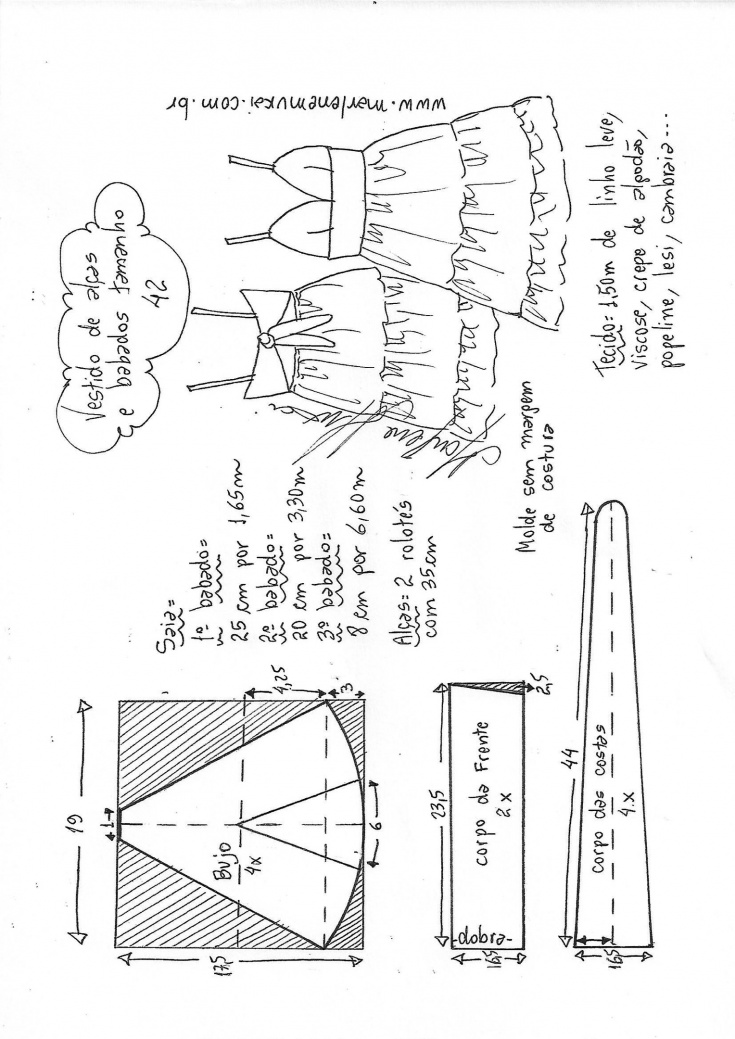 Vestido de alças
e babados femenino
42
www.marlenemukai.com.br
Tecido= 1,50m de linho leve,
viscose, crepe de alpodão,
popeline, lesi, cambraia...
Marlene
Mukai
Saia=
1º babado=
25 cm por 1,65m
2º babado=
20 cm por 3,30m
3º babado=
8 cm por 6,60m
Alças= 2 rolotés
com 35cm
Molde sem margem
de costura
19
1
4,25
3
Bujo
4x
6
17,5
23,5
corpo da Frente
2x
-dobra-
16,5
2,5
44
corpo das costas
4.x
16,5